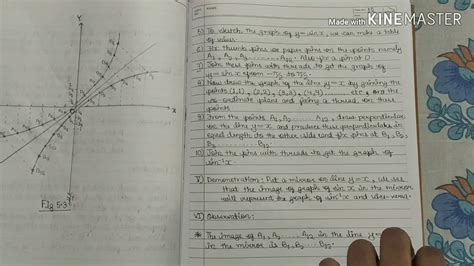 Made with KINEMASTER
Y
X
Fig 5.3
5) To sketch the graph of y = sin x, we can make a table
of values
6) Fix thumb pins or paper pins on the points namely
A₁, A₂, A₃ ............ A₁₂. Also fix a pin at O
7) Join these pins with threads to get the graph of
y = sin x from
8) Now draw the graph of the line y = x by joining the
points (1,1), (2,2), (3,3), (4,4) etc on the
co-ordinate plane and fixing a thread on these
points
9) From the points A₁, A₂, ............ A₁₂, draw perpendicular
on the line y = x and produce these perpendiculars in
equal length to the other side and fix pins at B₁, B₂,
B₁₂
10) Join the pins with threads to get the graph of
sin⁻¹x
V) Demonstration: Put a mirror on line y = x, we see
that the image of graph of sin x in the mirror
will represent the graph of sin⁻¹x and vice-versa.
VI) Observation:
* The image of A₁, A₂ ...... A₁₂ in the line y =
in the mirror is B₁, B₂ ...... B₁₂.